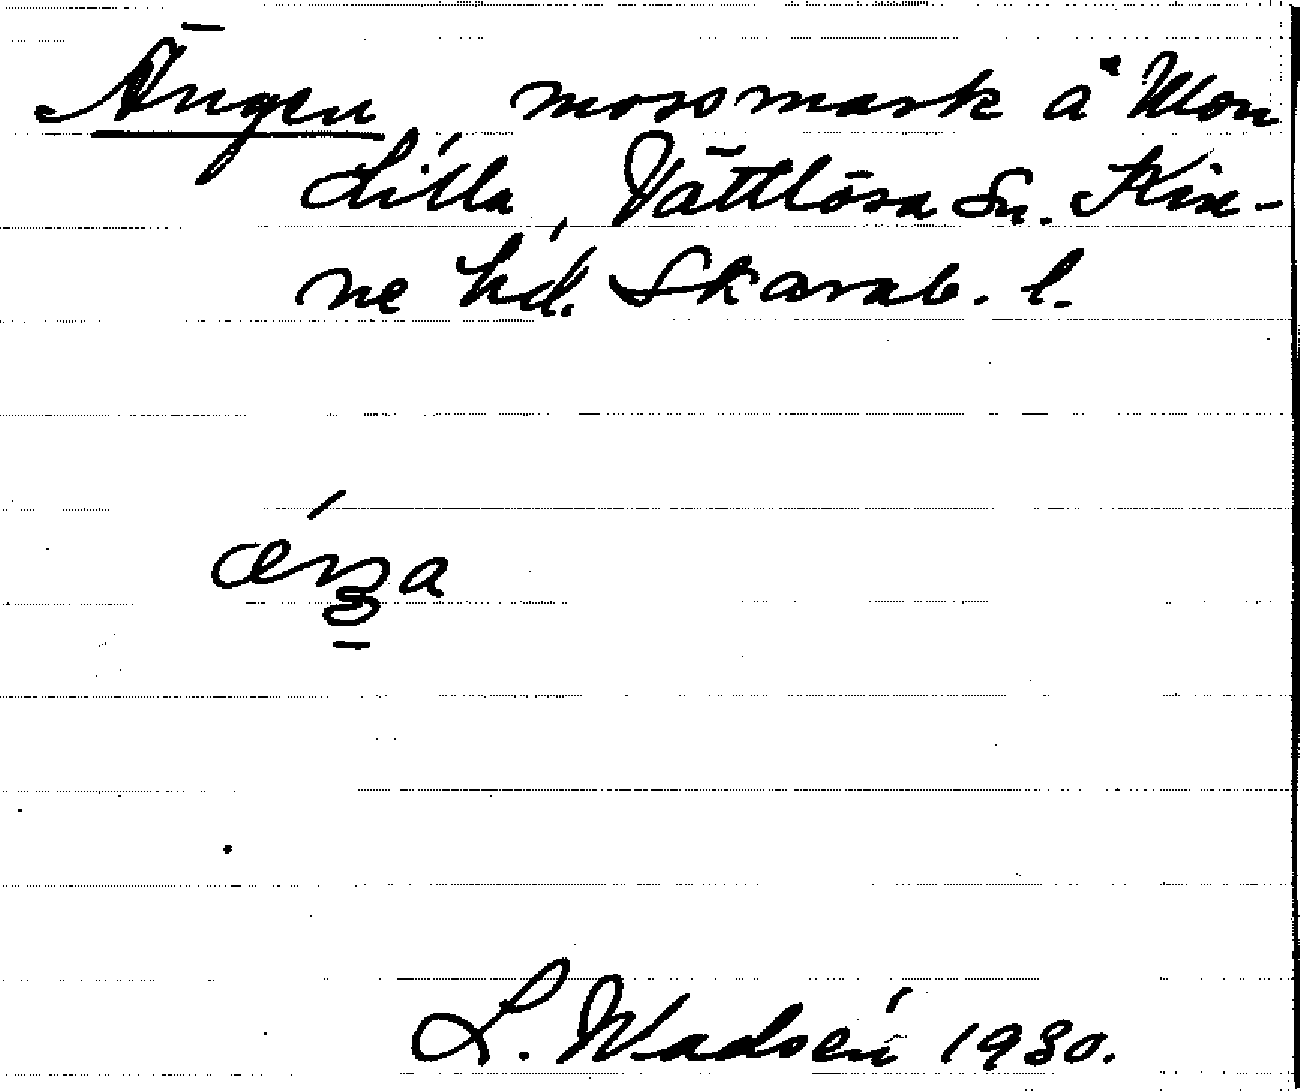 Ängen mossmark å Mon
Lilla, Vättlösa Sn. Kin-
ne hd. Skarab. l.
L. Wadsén 1930.